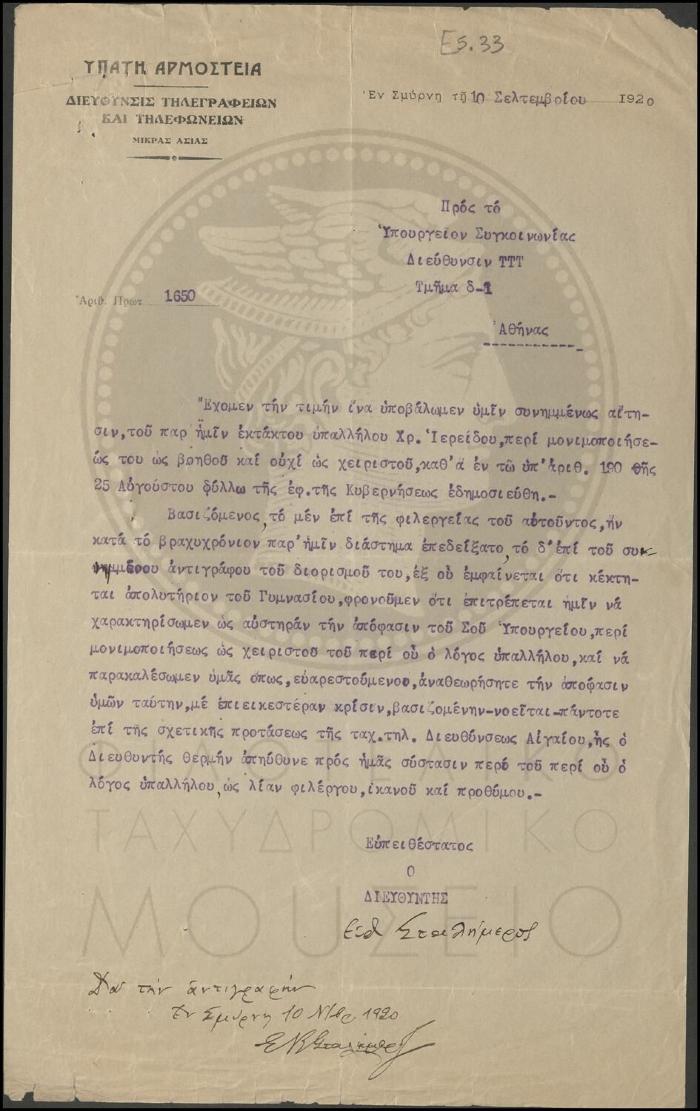 Es. 33
ΥΠΑΤΗ ΑΡΜΟΣΤΕΙΑ
ΔΙΕΥΘΥΝΣΙΣ ΤΗΛΕΓΡΑΦΕΙΩΝ
ΚΑΙ ΤΗΛΕΦΩΝΕΙΩΝ
ΜΙΚΡΑΣ ΑΣΙΑΣ
Ἐν Σμύρνῃ τῇ 10 Σελτεμβοίου 1920
Πρός τό
Ὑπουργεῖον Συγκοινωνίας
Διεύθυνσιν ΤΤΤ
Τμῆμα δ-1
Ἀθήνας
Ἀριθ. Πρωτ. 1650
Ἔχομεν τήν τιμήν ἵνα ὑποβάλωμεν ὑμῖν συνημμένως αἴτη-
σιν,τοῦ παρ ἡμῖν ἐκτάκτου ὑπαλλήλου Χρ. Ἱερείδου,περί μονιμοποιήσε-
ώς του ὡς βοηθοῦ καί οὐχί ὡς χειριστοῦ,καθ'ἅ ἐν τῶ ὑπ'ἀριθ. 190 τῆς
25 Αὐγούστου φύλλω τῆς ἐφ.τῆς Κυβερνήσεως ἐδημοσιεύθη.-
Βασιζόμενος,τό μέν ἐπί τῆς φιλεργείας τοῦ αἰτοῦντος,ἥν
κατά τό βραχυχρόνιον παρ'ἡμῖν διάστημα ἐπεδείξατο,τό δ'ἐπί τοῦ συ
νημμένου ἀντιγράφου τοῦ διορισμοῦ του,ἐξ οὗ ἐμφαίνεται ὅτι κέκτη-
ται ἀπολυτήριον τοῦ Γυμνασίου,φρονοῦμεν ὅτι ἐπιτρέπεται ἡμῖν νά
χαρακτηρίσωμεν ὡς αὐστηράν τήν ἀπόφασιν τοῦ Σοῦ Ὑπουργείου,περί
μονιμοποιήσεως ὡς χειριστοῦ τοῦ περί οὗ ὁ λόγος ὑπαλλήλου,καί νά
παρακαλέσωμεν ὑμᾶς ὅπως,εὐαρεστούμενοι,ἀναθεωρήσητε τήν ἀπόφασιν
ὑμῶν ταύτην,μέ ἐπιεικεστέραν κρίσιν,βασιζομένην-νοεῖται-πάντοτε
ἐπί τῆς σχετικῆς προτάσεως τῆς ταχ.τηλ. Διευθύνσεως Αἰγαίου,ἧς ὁ
Διευθυντής θερμήν ἀπηύθυνε πρός ἡμᾶς σύστασιν περί τοῦ περί οὗ ὁ
λόγος ὑπαλλήλου,ὡς λίαν φιλέργου,ἱκανοῦ καί προθύμου.-
Εὐπειθέστατος
Ο
ΔΙΕΥΘΥΝΤΗΣ
Διά τήν ἀντιγραφήν
Ἐν Σμύρνῃ 10 Νβρ 1920
ΦΙΛΟΤΕΛΙΚΟ
ΤΑΧΥΔΡΟΜΙΚΟ
ΜΟΥΣΕΙΟ